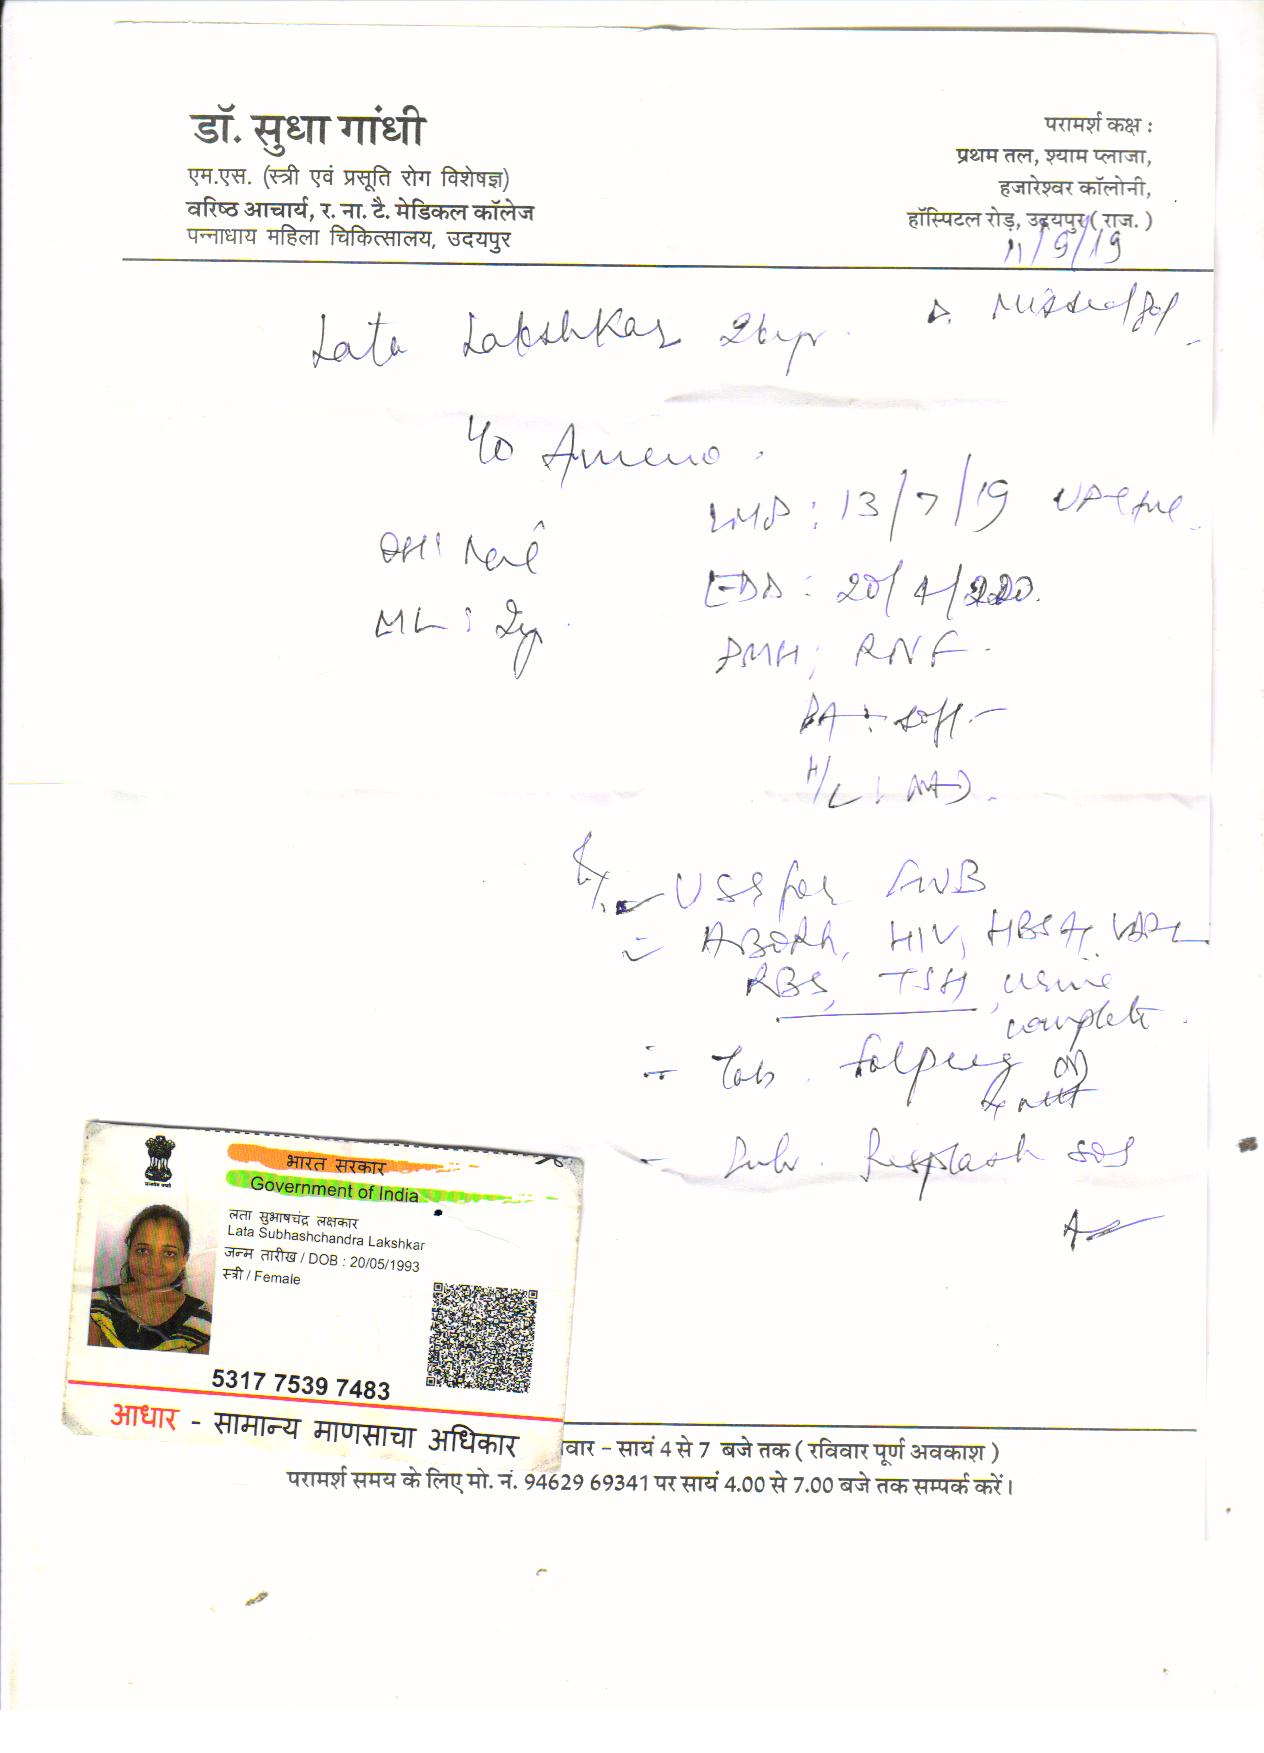 डॉ. सुधा गांधी
एम.एस. (स्त्री एवं प्रसूति रोग विशेषज्ञ)
वरिष्ठ आचार्य, र. ना. टै. मेडिकल कॉलेज
पन्नाधाय महिला चिकित्सालय, उदयपुर
परामर्श कक्ष :
प्रथम तल, श्याम प्लाजा,
हजारेश्वर कॉलोनी,
हॉस्पिटल रोड़, उदयपुर ( राज. )
11/9/19
Lata Lakshkar 26yr.
Ameno.
LMP : 13/7/19
EDD : 20/4/2020.
OH:
ML :
PMH; RNF.
PA : soft.
H/L : NAD.
USG for
ABORh, HIV, HBSAg, VDRL
RBS, TSH, urine
complete.
Tab. OD
SOS
भारत सरकार
Government of India
लता सुभाषचंद्र लक्षकार
Lata Subhashchandra Lakshkar
जन्म तारीख / DOB : 20/05/1993
स्त्री / Female
5317 7539 7483
आधार - सामान्य माणसाचा अधिकार
वार – सायं 4 से 7 बजे तक ( रविवार पूर्ण अवकाश )
परामर्श समय के लिए मो. नं. 94629 69341 पर सायं 4.00 से 7.00 बजे तक सम्पर्क करें।